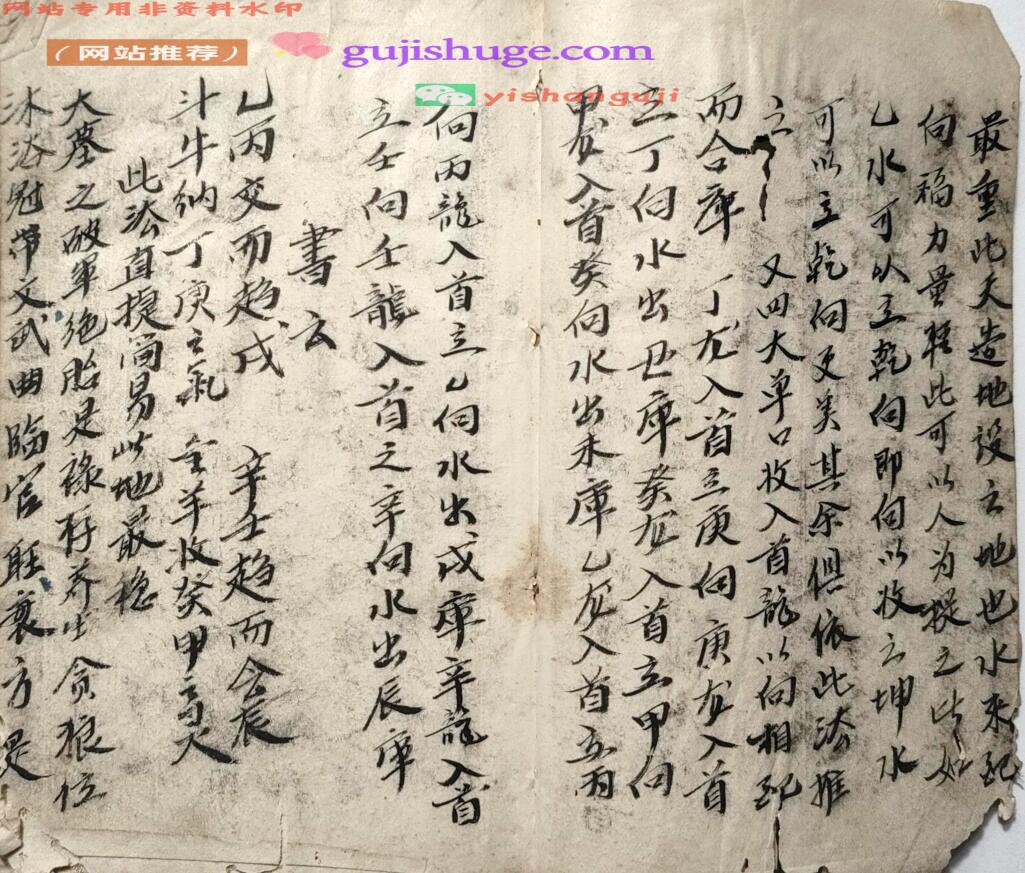 网站专用非资料水印
（网站推荐）
gujishuge.com
yishanguji
最重此天造地设之地也水来配
向福力量轻此可以人为提之此如
乙水可以立乾向即向以收之坤水
可以立乾向更美其余俱依此法推
之 又四大单口收入首龍以向相配
而合庫 丁龙入首立庚向 庚龙入首
立丁向水出丑庫癸龙入首立甲向
甲龙入首癸向水出未庫乙龙入首立丙
向丙龍入首立乙向水出戍庫辛龍入首
立壬向壬龍入首之辛向水出辰庫
書云
乙丙交而趋戍 辛壬趋而会辰
斗牛纳丁庚之氣 金羊收癸甲之灵
此法直捷简易此地最稳
大墓之破軍绝胎是禄存养生贪狼位
沐浴冠带文武曲临官旺衰方是